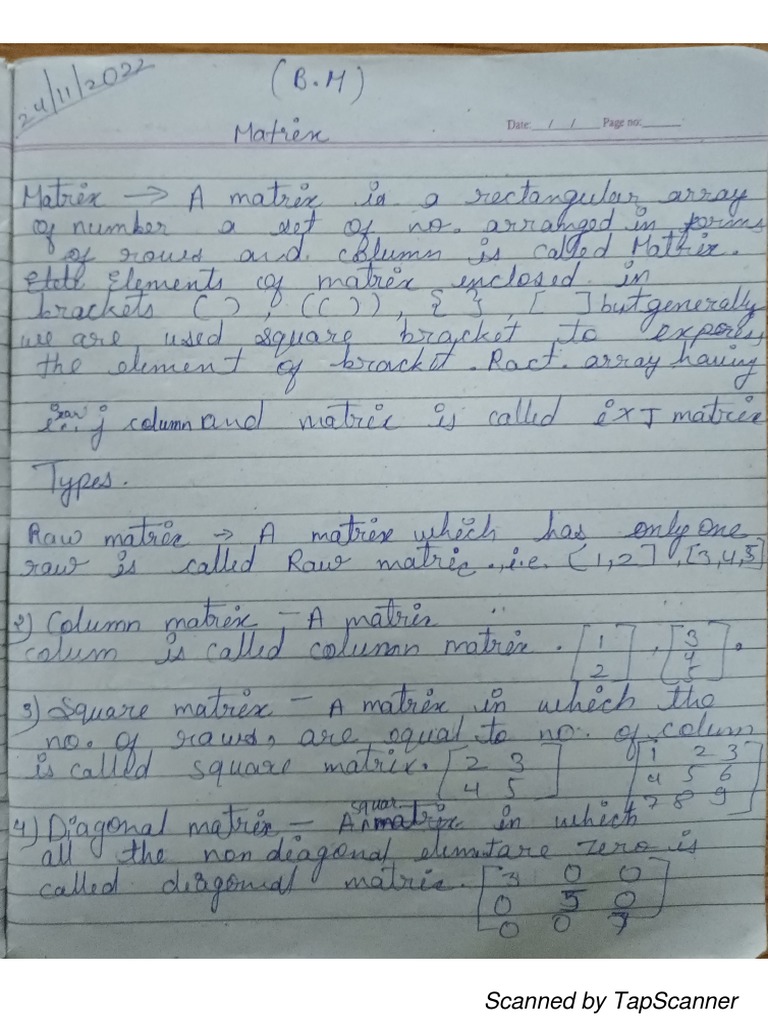 24/11/2022
(B.M)
Date: __/__/____ Page no:______
Matrix
Matrix → A matrix is a rectangular array
of number a set of no. arranged in forms
of rows and column is called Matrix.
Elements of matrix enclosed in
brackets ( ), (( )), { }, [ ] but generally
we are used square bracket to express
the element of bracket. Ract. array having
j column and matrix is called i×J matrix
Types.
Raw matrix → A matrix which has only one
raw is called Raw matrix. i.e. [1,2], [3,4,5]
2) Column matrix – A matrix ''
colum is called column matrix. [1 2], [3 4 5].
3) Square matrix – A matrix in which the
no. of raws, are equal to no. of column
is called square matrix. [2 3 4 5] [1 2 3 4 5 6 7 8 9]
4) Diagonal matrix – A squar matrix in which
all the non diagonal elemtare zero is
called diagonal matrix. [3 0 0 0 5 0 0 0 7]
Scanned by TapScanner